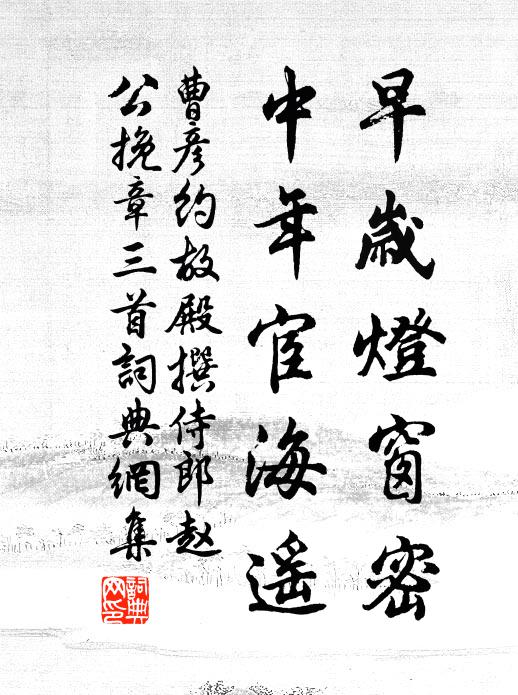 早歲燈窗密
中年宦海遥
曹彥約故殿撰侍郎赵
公挽章三首詞典網集
詞典
网印